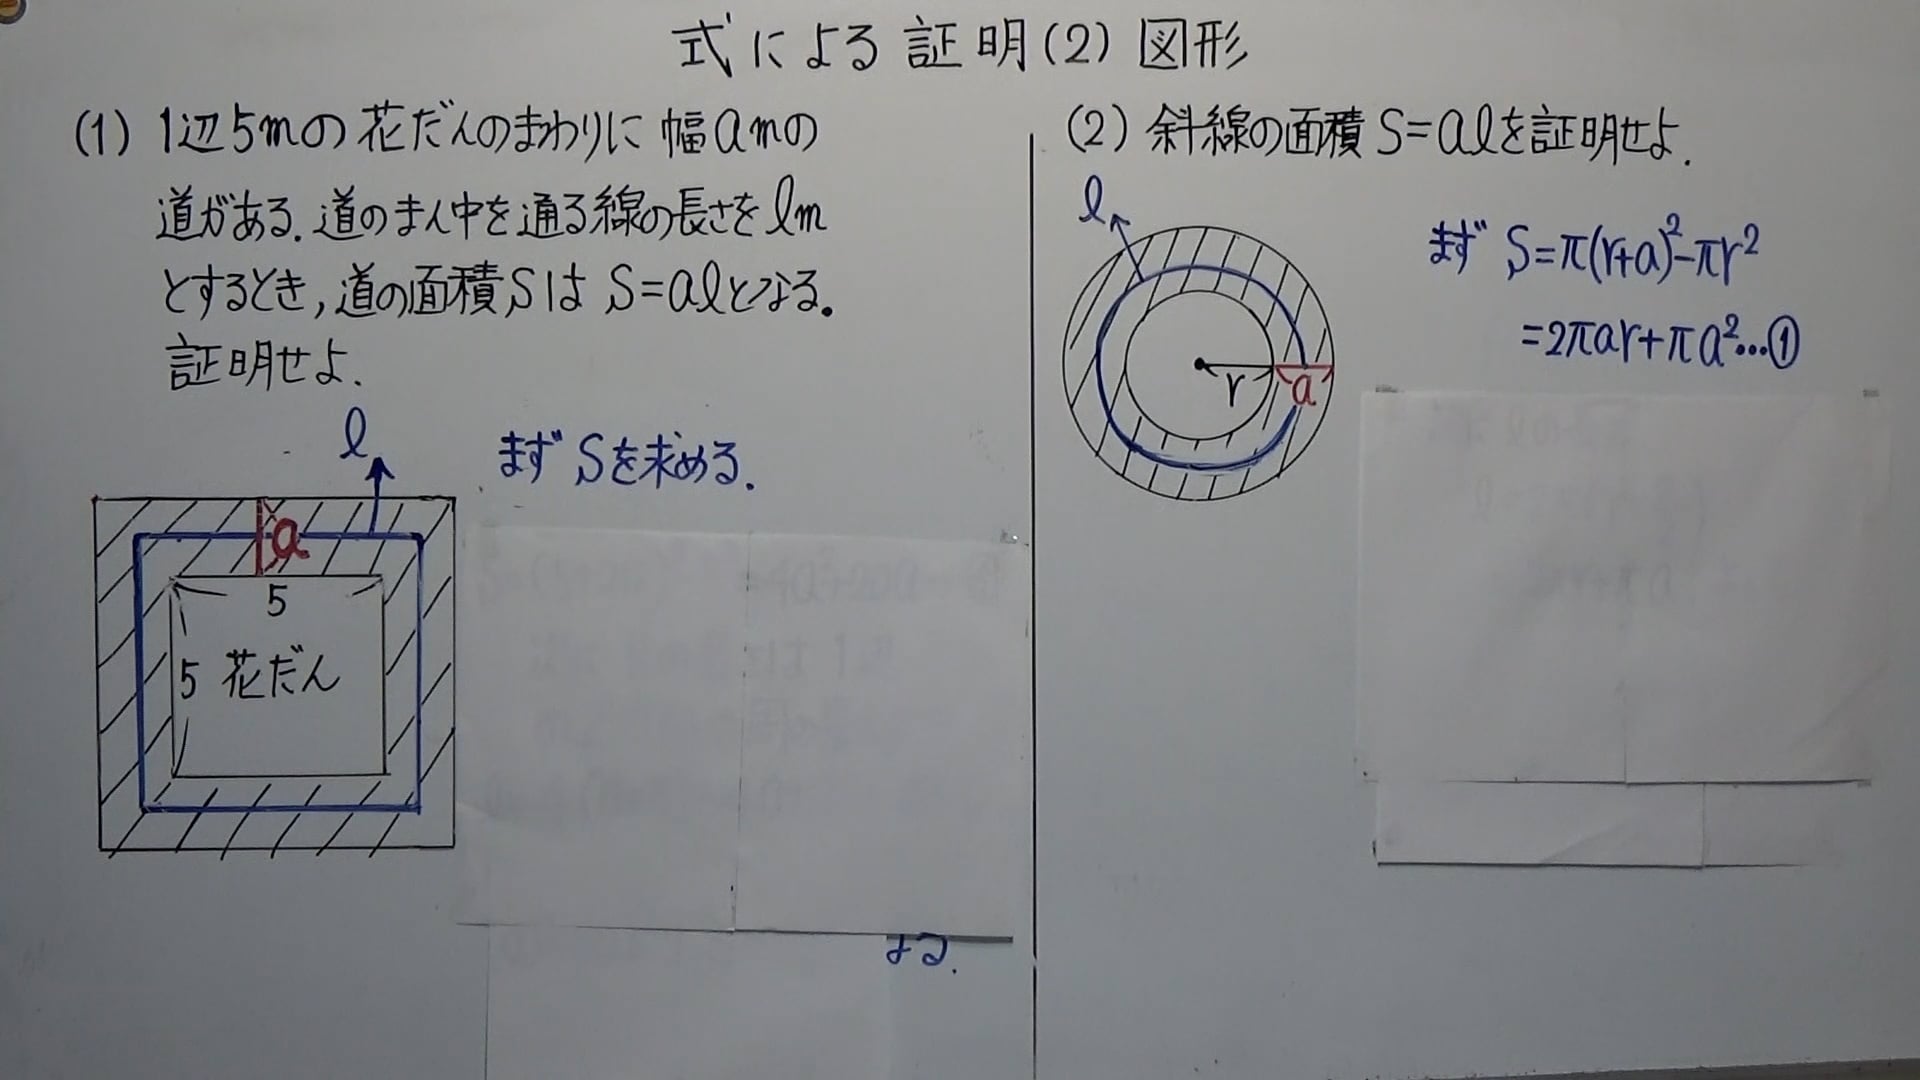 式による証明(2) 図形
(1) 1辺5mの花だんのまわりに幅amの
道がある.道のまん中を通る線の長さをℓm
とするとき,道の面積SはS=aℓとなる。
証明せよ.
ℓ
まずSを求める.
a
5
5 花だん
(2) 斜線の面積S=aℓを証明せよ.
ℓ
r
a
まず S=π(r+a)²-πr²
=2πar+πa²…①